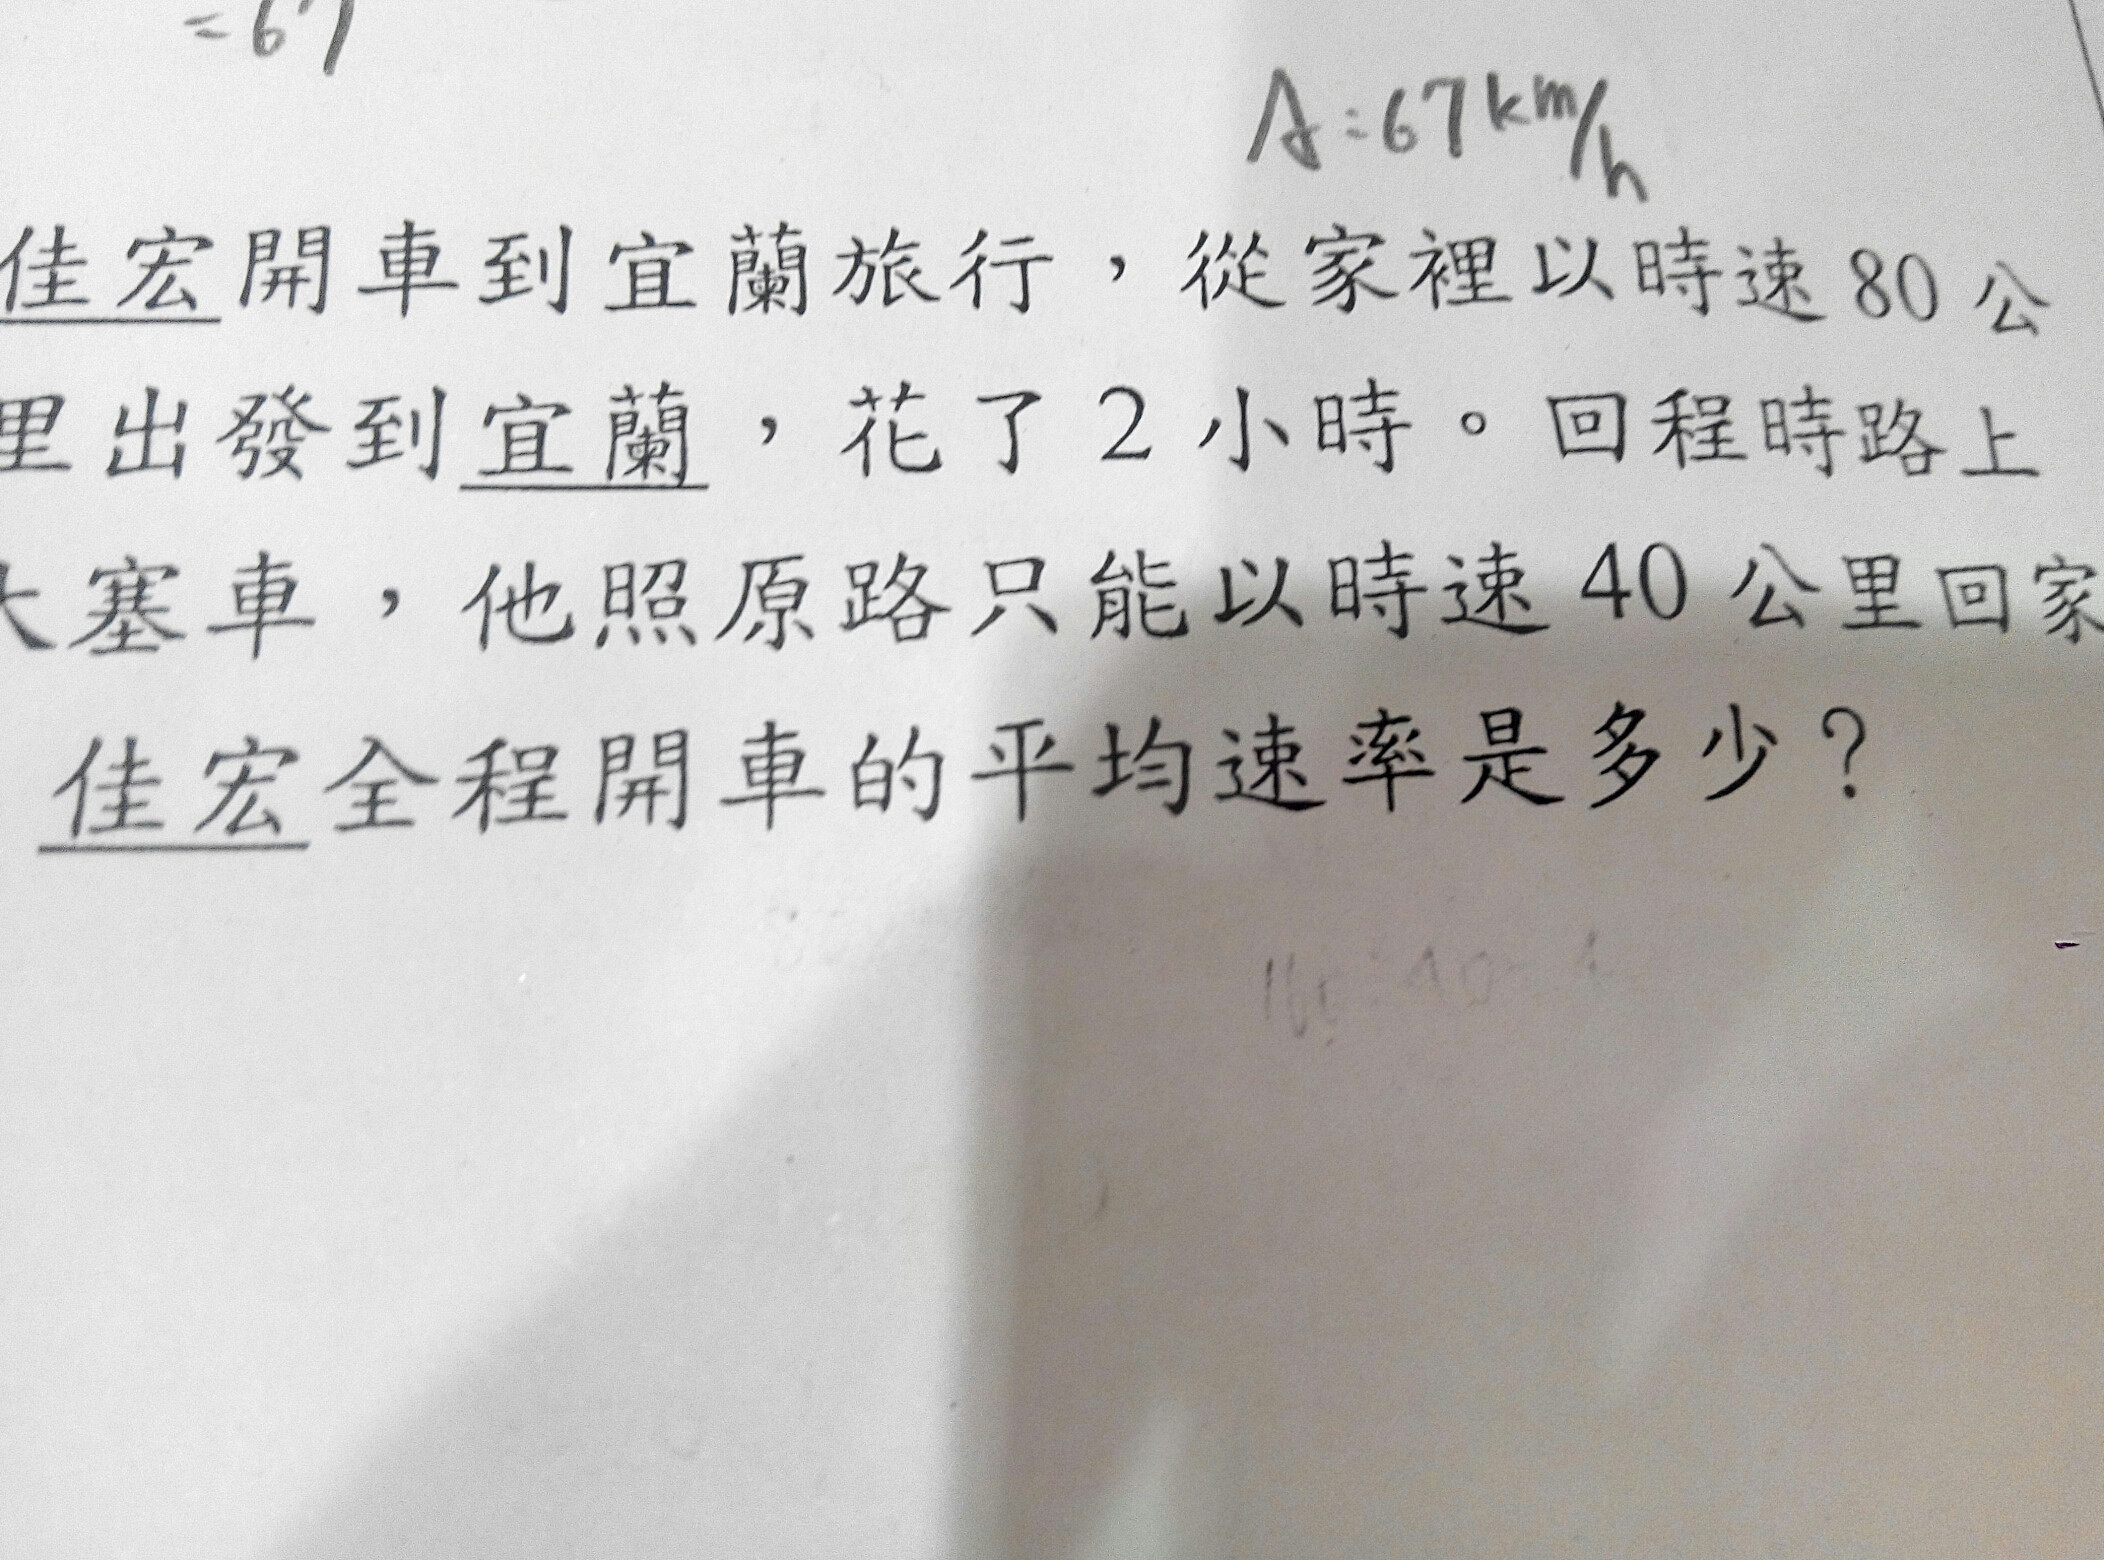 =67
A:67km/h
佳宏開車到宜蘭旅行，從家裡以時速80公
里出發到宜蘭，花了2小時。回程時路上
大塞車，他照原路只能以時速40公里回家
佳宏全程開車的平均速率是多少？